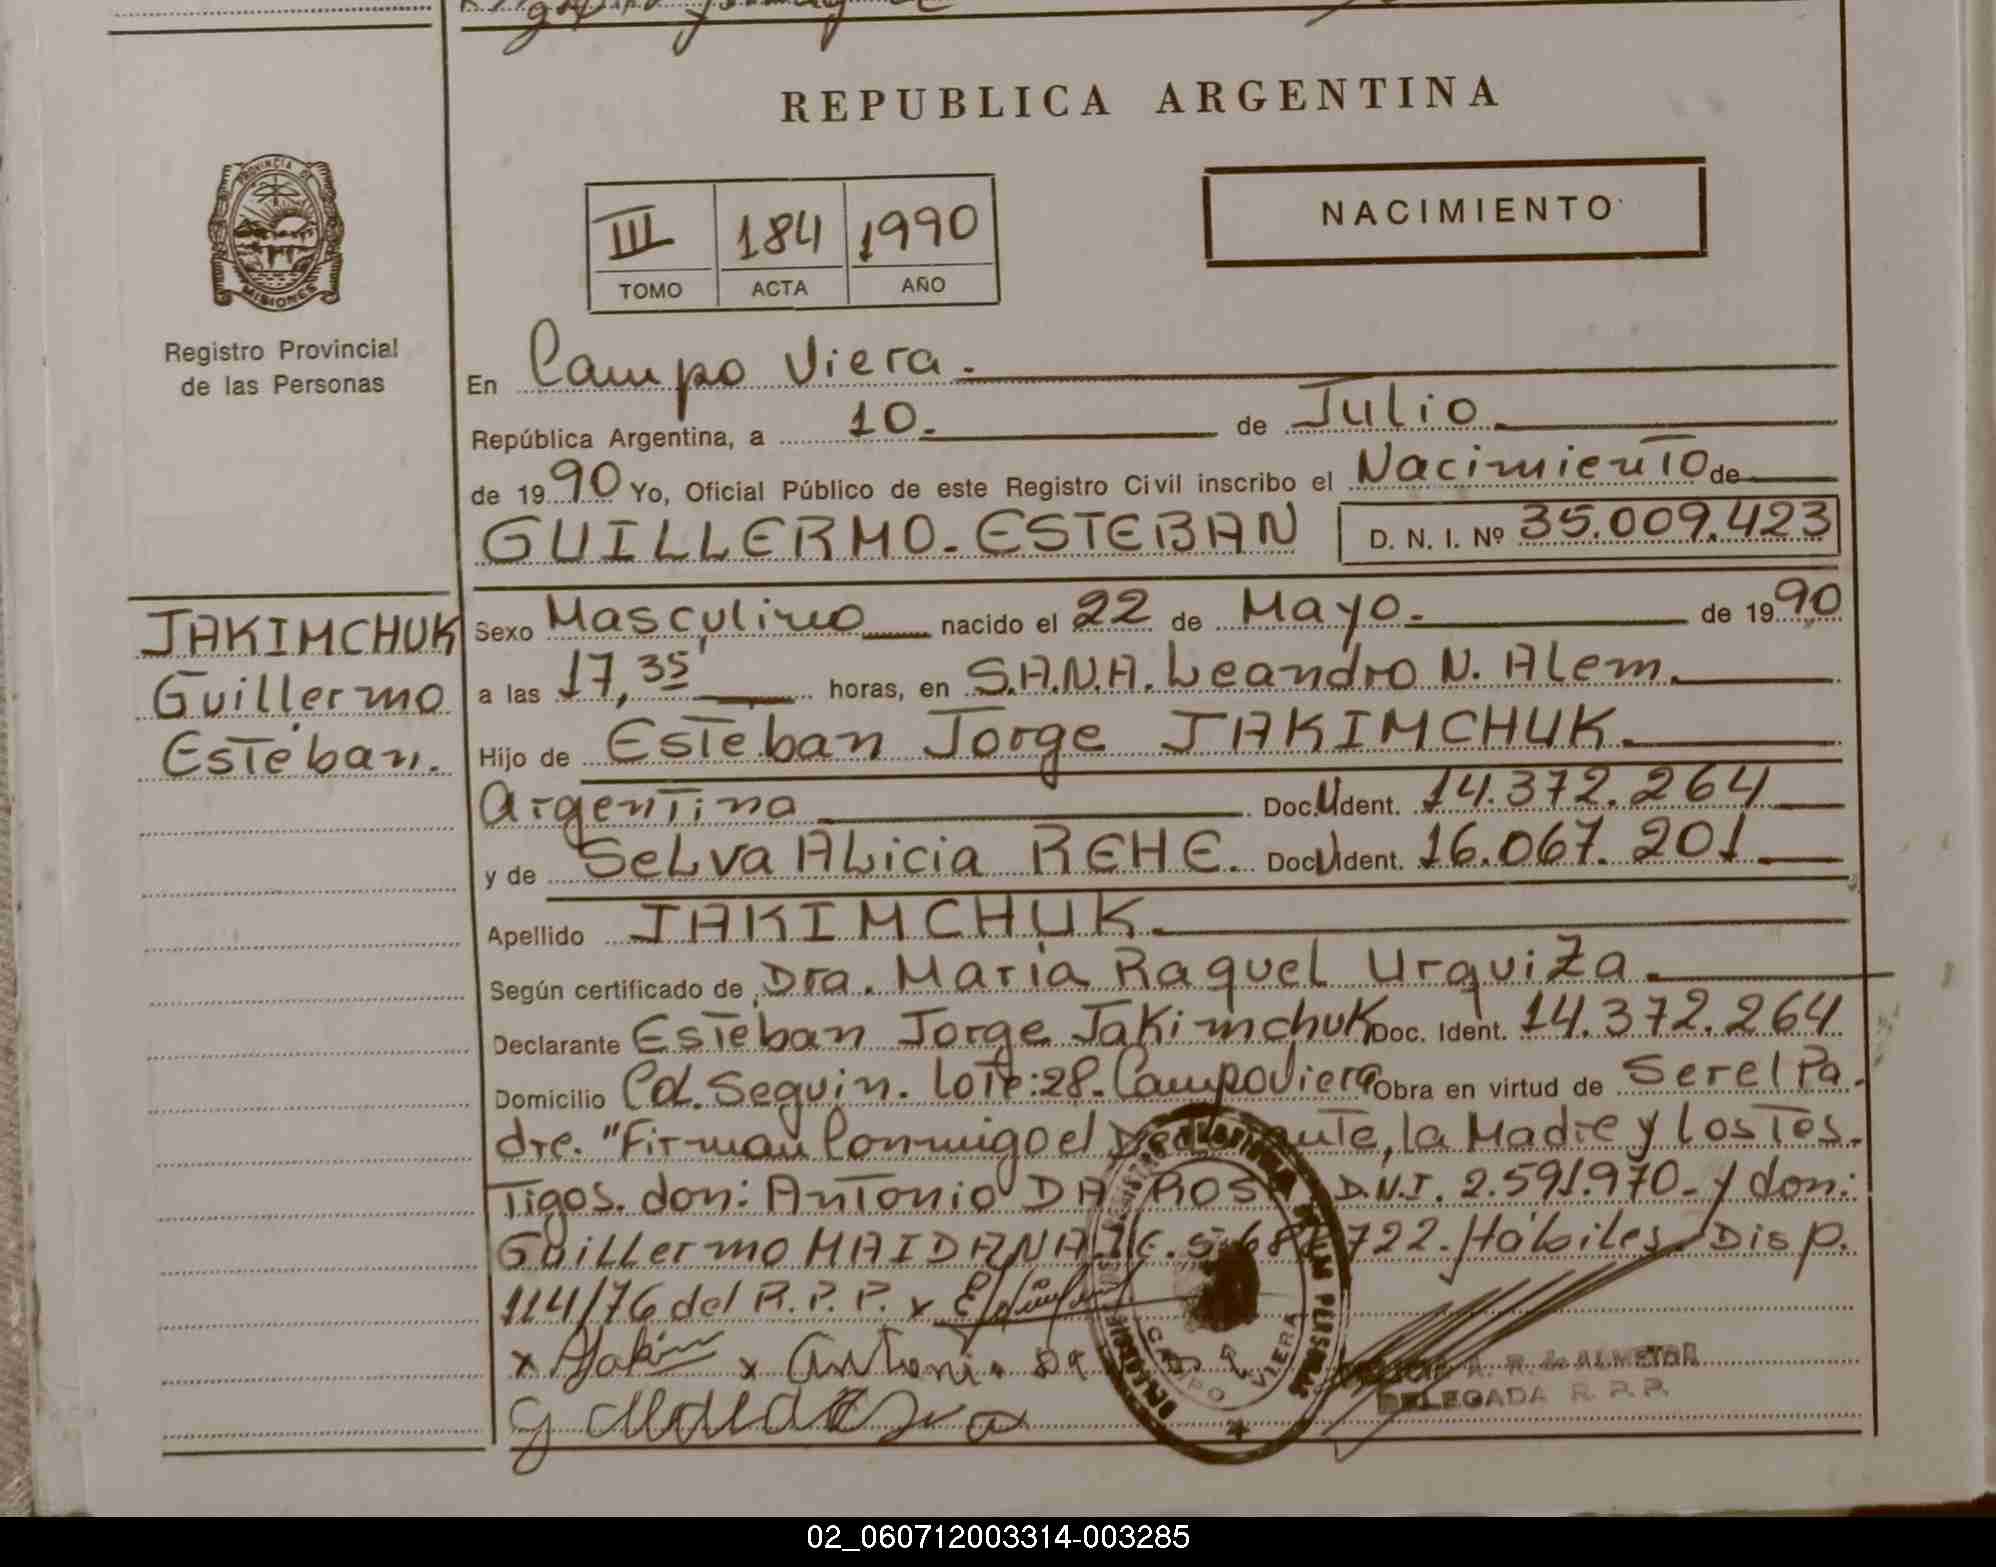 REPUBLICA ARGENTINA
PROVINCIA DE
MISIONES
Registro Provincial
de las Personas
III 184 1990
TOMO ACTA AÑO
NACIMIENTO
En Campo Viera.
República Argentina, a 10. de Julio
de 1990 Yo, Oficial Público de este Registro Civil inscribo el Nacimiento de
GUILLERMO-ESTEBAN D. N. I. Nº 35.009.423
JAKIMCHUK
Guillermo
Esteban.
Sexo Masculino nacido el 22 de Mayo. de 1990
a las 17,35' horas, en S.A.N.A. Leandro N. Alem.
Hijo de Esteban Jorge JAKIMCHUK.
Argentino Doc. Ident. 14.372.264
y de SeLva ALicia REHE. Doc. Ident. 16.067.201
Apellido JAKIMCHUK.
Según certificado de Dra. Maria Raquel Urquiza.
Declarante Esteban Jorge Jakimchuk Doc. Ident. 14.372.264
Domicilio Col. Seguin. Lote:28. Campo Viera Obra en virtud de Ser el Pa.
dre. "Firman Conmigo el Declarante, la Madre y los Tes.
Tigos. don: Antonio DA ROSA D.N.I. 2.591.970. y don:
Guillermo MAIDANA 722. Hábiles Disp.
114/76 del R.P.P. x
x x Antoni. Da
CAMPO VIERA
A. R. de ALMEIDA
DELEGADA R. P. P.
02_060712003314-003285